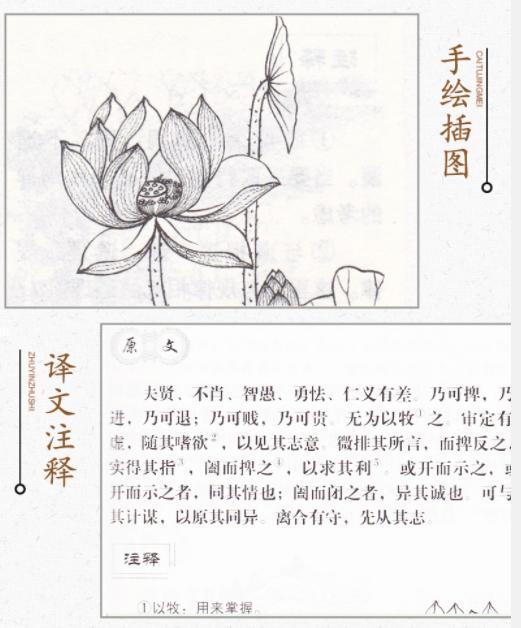 手绘插图
CAITUJINGMEI
译文注释
ZHUYINZHUSHI
原 文
夫贤、不肖、智愚、勇怯、仁义有差。乃可捭,乃
进,乃可退;乃可贱,乃可贵。无为以牧¹之。审定有
虚,随其嗜欲²,以见其志意。微排其所言,而捭反之,
实得其指³,阖而捭之⁴,以求其利⁵。或开而示之,或
开而示之者,同其情也;阖而闭之者,异其诚也。可与
其计谋,以原其同异。离合有守,先从其志。
注释
①以牧:用来掌握。